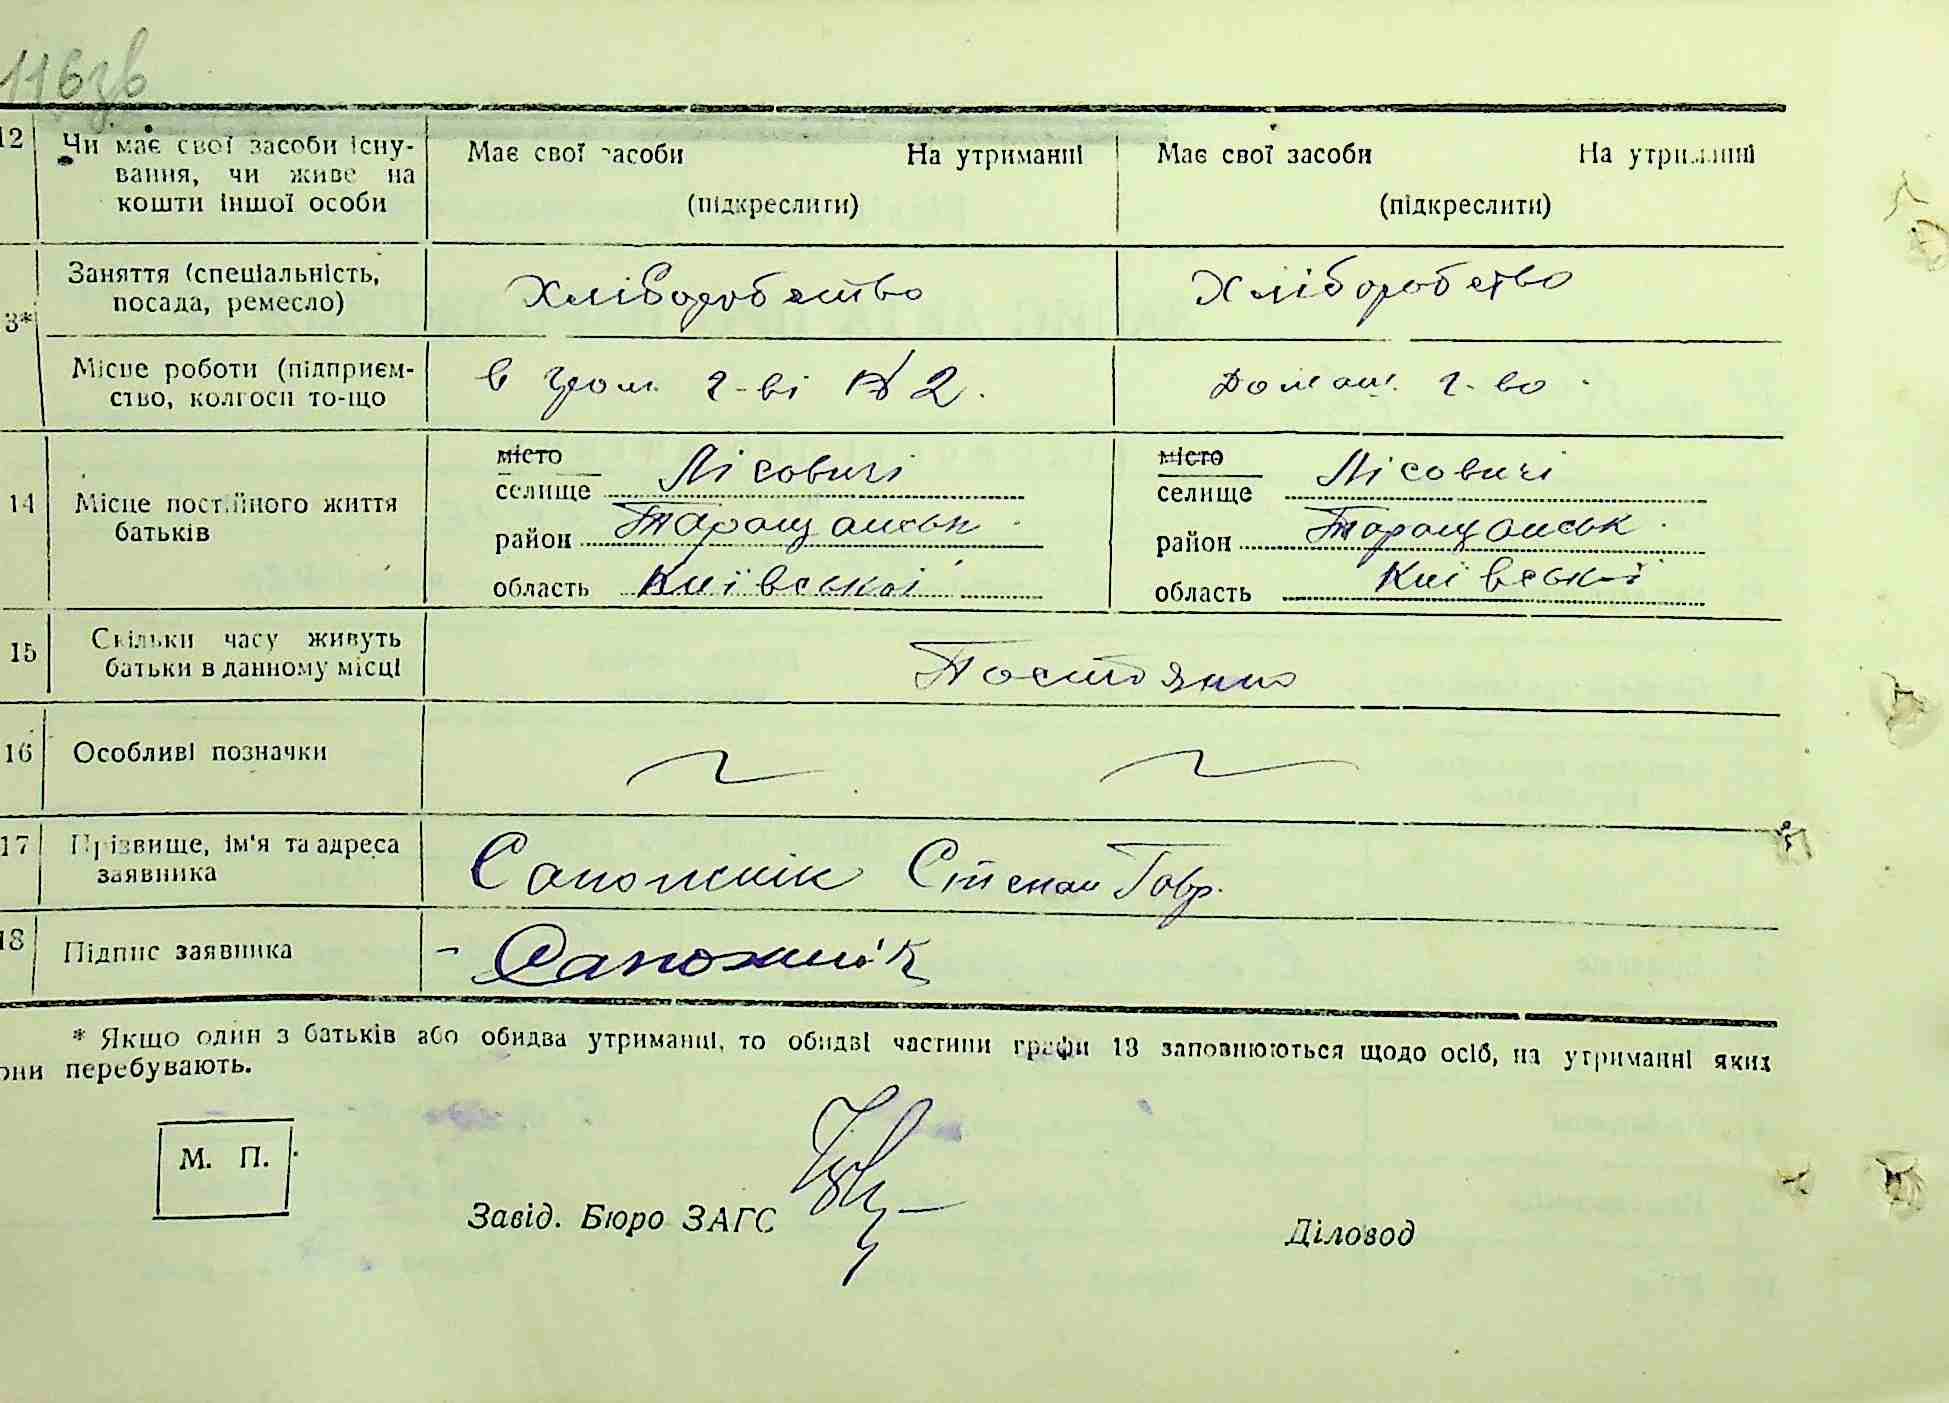 116зв
12 Чи має свої засоби існу- Має свої засоби На утриманні Має свої засоби На утриманні
вання, чи живе на
кошти іншої особи (підкреслити) (підкреслити)
Заняття (спеціальність, Хліборобство Хліборобство
посада, ремесло)
3*
Місце роботи (підприєм- в гром. г-ві №2. Домаш. г-во
ство, колгосп то-що
14 Місце постійного життя батьків
місто місто
селище Лісовичі селище Лісовичі
район Таращанськ район Таращанськ
область Київської область Київської
15 Скільки часу живуть Постоянно
батьки в данному місці
16 Особливі позначки
17 Прізвище, ім'я та адреса Сапожнік Степан Гавр.
заявника
18 Підпис заявника - Сапожнік
* Якщо один з батьків або обидва утриманці, то обидві частини графи 13 заповнюються щодо осіб, на утриманні яких
они перебувають.
М. П.
Завід. Бюро ЗАГС Діловод